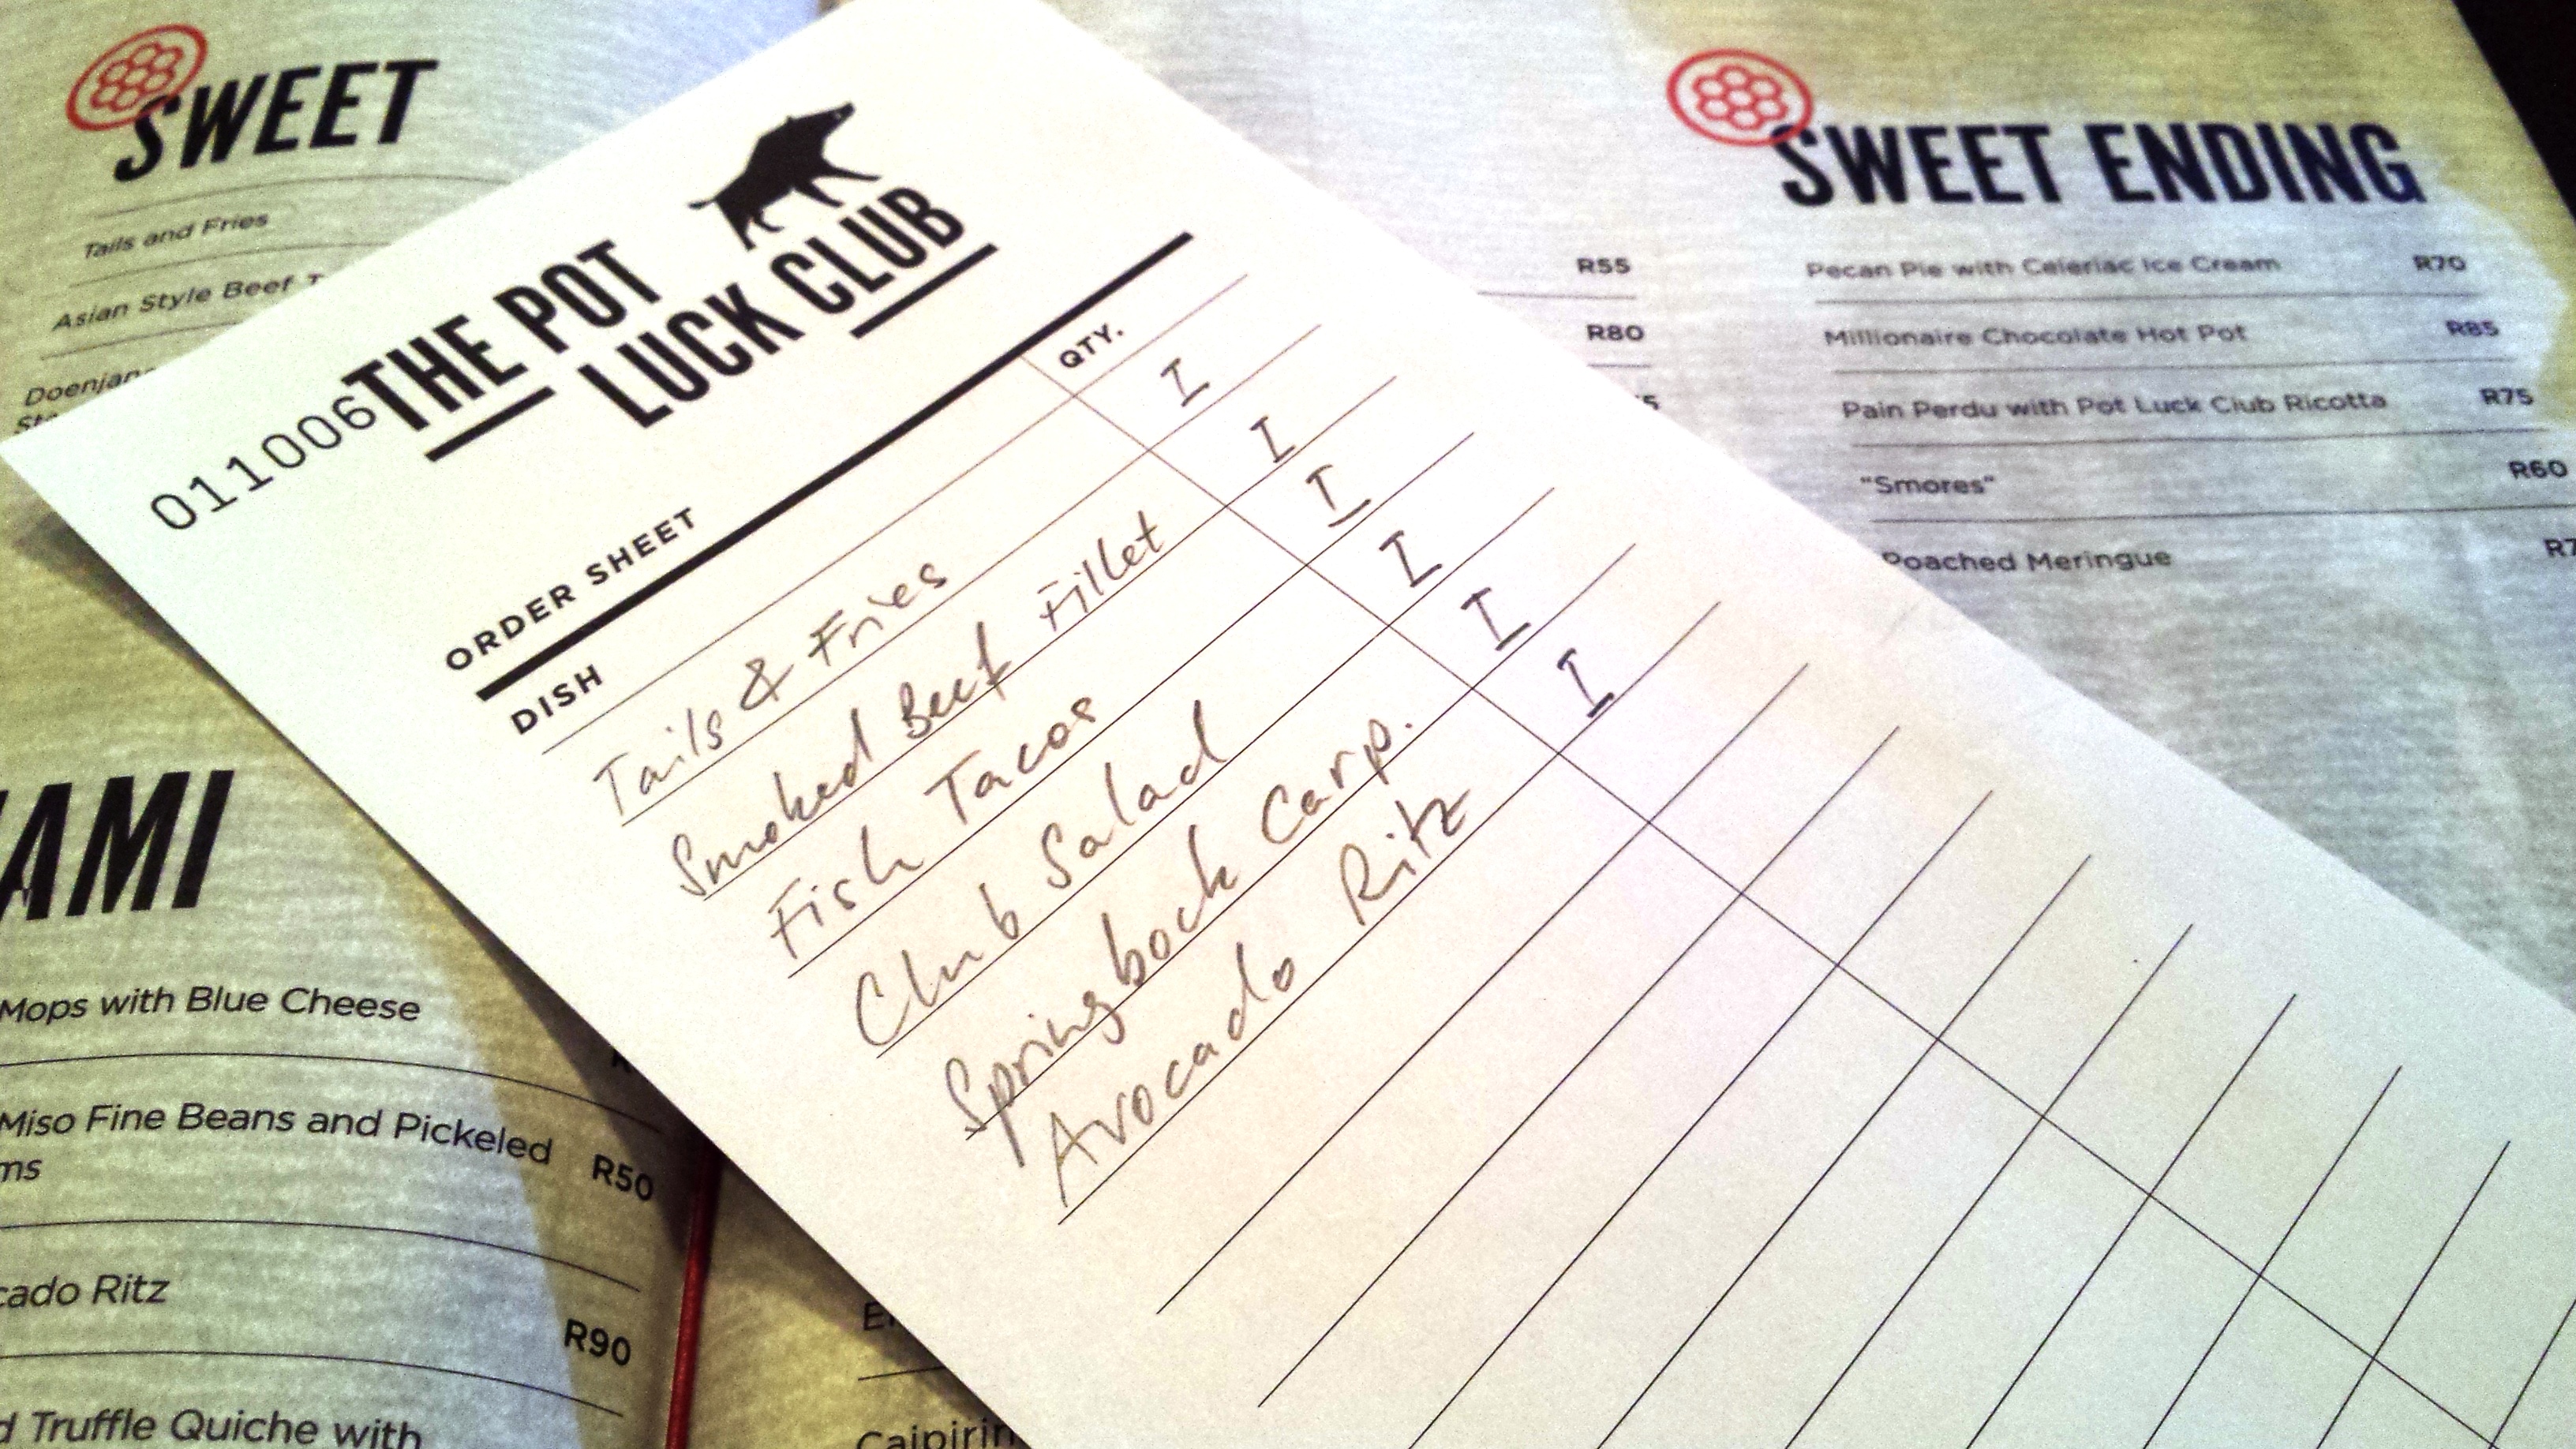 SWEET
Tails and Fries
Asian Style Beef
Doenjang
011006
THE POT
LUCK CLUB
ORDER SHEET
DISH QTY.
Tails & Fries I
Smoked Beef Fillet I
Fish Tacos I
Club Salad I
Springbock Carp. I
Avocado Ritz I
SWEET ENDING
R55
R80
Pecan Pie with Celeriac Ice Cream R70
Millionaire Chocolate Hot Pot R85
Pain Perdu with Pot Luck Club Ricotta R75
"Smores" R60
Poached Meringue R7
AMI
Mops with Blue Cheese
Miso Fine Beans and Pickeled
ms R50
cado Ritz
R90
d Truffle Quiche with
Caipirin